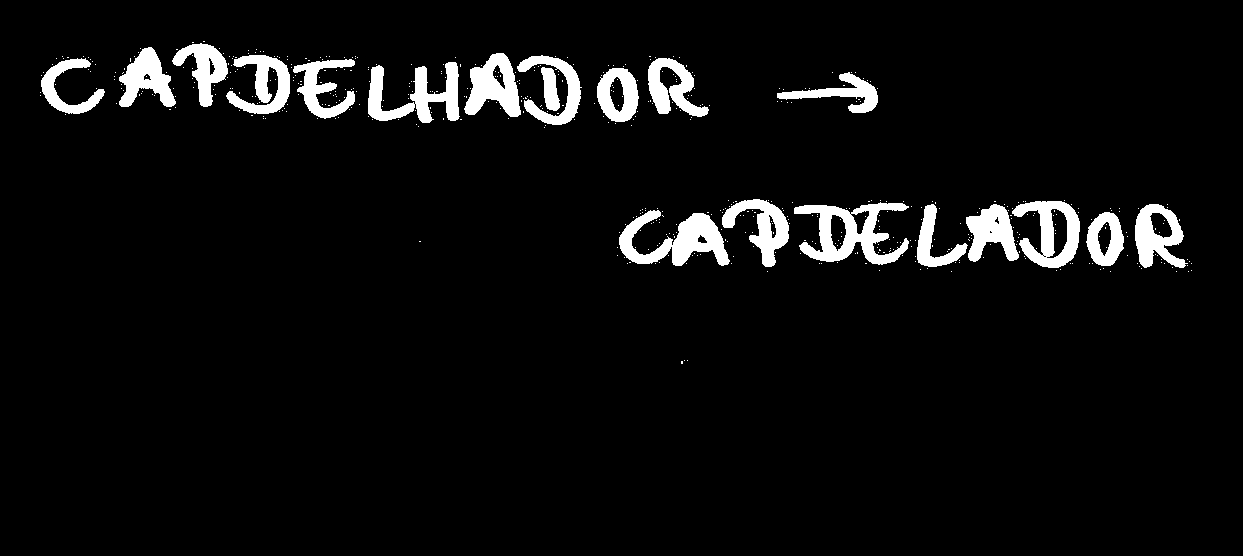 CAPDELHADOR →
CAPDELADOR